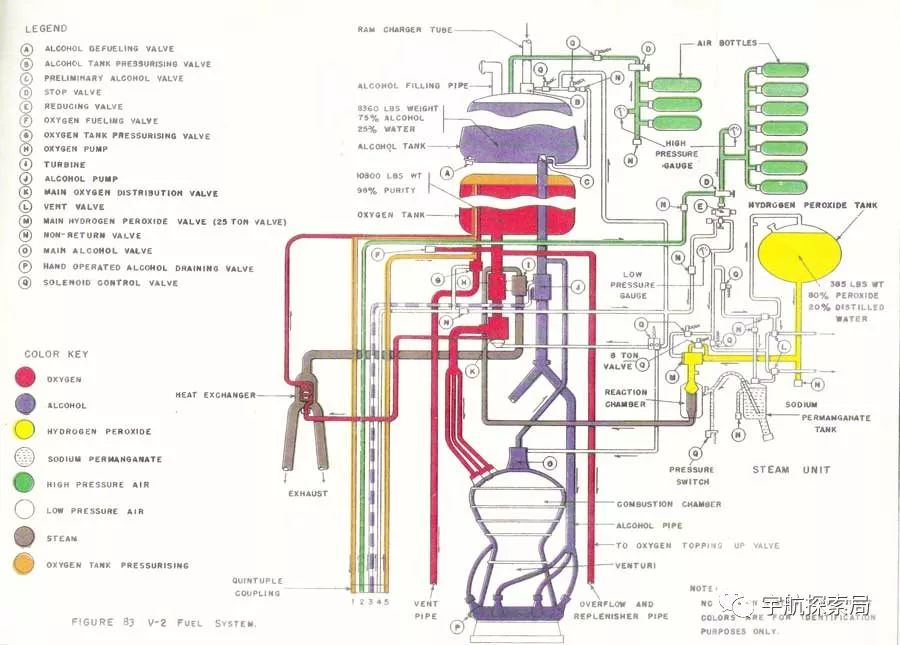 LEGEND
A ALCOHOL DEFUELING VALVE
B ALCOHOL TANK PRESSURISING VALVE
C PRELIMINARY ALCOHOL VALVE
D STOP VALVE
E REDUCING VALVE
F OXYGEN FUELING VALVE
G OXYGEN TANK PRESSURISING VALVE
H OXYGEN PUMP
I TURBINE
J ALCOHOL PUMP
K MAIN OXYGEN DISTRIBUTION VALVE
L VENT VALVE
M MAIN HYDROGEN PEROXIDE VALVE (25 TON VALVE)
N NON-RETURN VALVE
O MAIN ALCOHOL VALVE
P HAND OPERATED ALCOHOL DRAINING VALVE
Q SOLENOID CONTROL VALVE
COLOR KEY
OXYGEN
ALCOHOL
HYDROGEN PEROXIDE
SODIUM PERMANGANATE
HIGH PRESSURE AIR
LOW PRESSURE AIR
STEAM
OXYGEN TANK PRESSURISING
RAM CHARGER TUBE
ALCOHOL FILLING PIPE
8360 LBS WEIGHT
75% ALCOHOL
25% WATER
ALCOHOL TANK
10800 LBS WT
98% PURITY
OXYGEN TANK
AIR BOTTLES
HIGH
PRESSURE
GAUGE
HYDROGEN PEROXIDE TANK
385 LBS WT
80% PEROXIDE
20% DISTILLED
WATER
LOW
PRESSURE
GAUGE
8 TON
VALVE
REACTION
CHAMBER
SODIUM
PERMANGANATE
TANK
PRESSURE
SWITCH
STEAM UNIT
HEAT EXCHANGER
EXHAUST
COMBUSTION CHAMBER
ALCOHOL PIPE
TO OXYGEN TOPPING UP VALVE
VENTURI
QUINTUPLE
COUPLING
1 2 3 4 5
VENT
PIPE
OVERFLOW AND
REPLENISHER PIPE
NOTE:
宇航探索局
COLORS ARE FOR IDENTIFICATION
PURPOSES ONLY.
FIGURE 83 V-2 FUEL SYSTEM.